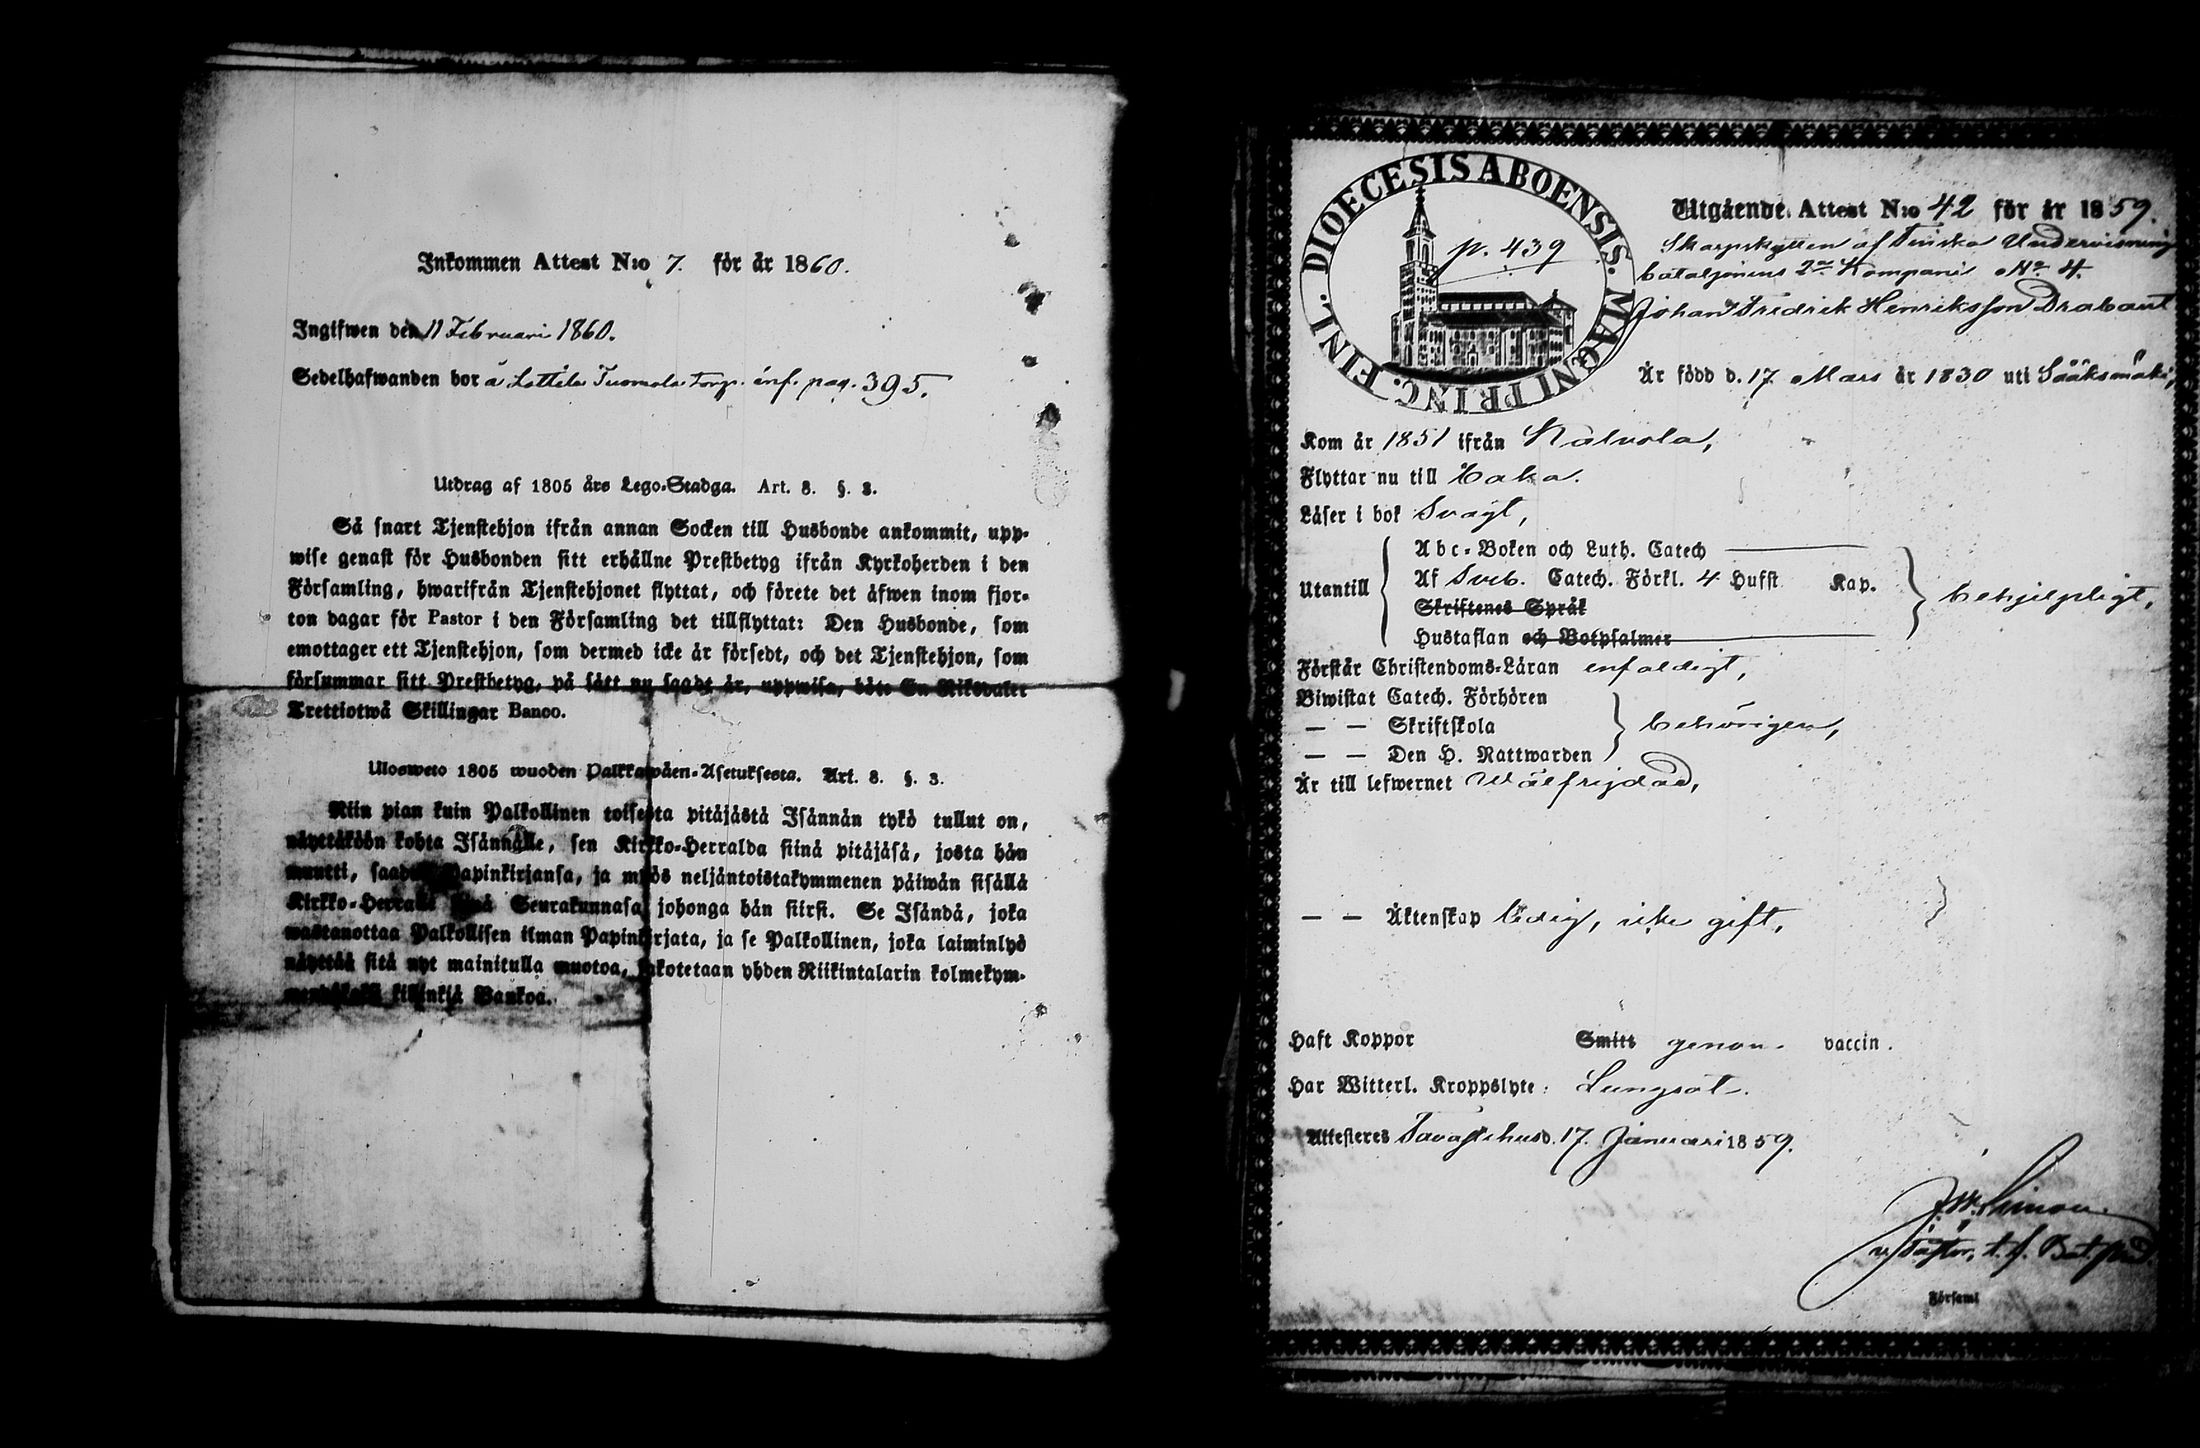 Inkommen Attest N:o 7. för år 1860.
Ingifwen den 11 Februari 1860.
Sedelhafwanden bor å Lottila Tuomola Torp. inf. pag. 395.
Utdrag af 1805 års Lego-Stadga. Art. 8. §. 3.
Så snart Tjenstehjon ifrån annan Socken till Husbonde ankommit, upp-
wise genast för Husbonden sitt erhållne Prestbetyg ifrån Kyrkoherden i den
Församling, hwarifrån Tjenstehjonet flyttat, och förete det äfwen inom fjor-
ton dagar för Pastor i den Församling det tillflyttat: Den Husbonde, som
emottager ett Tjenstehjon, som dermed icke är försedt, och det Tjenstehjon, som
försummar sitt Prestbetyg, på sätt nu sagdt är, uppwisa, böte En Riksdaler
Trettiotwå Skillingar Banco.
Ulosweto 1805 wuoden Palkkawäen-Asetuksesta. Art. 8. §. 3.
Niin pian kuin Palkollinen toisesta pitäjästä Isännän tykö tullut on,
näyttäköön kohta Isännälle, sen Kirkko-Herralda siinä pitäjäsä, josta hän
muutti, saadun Papinkirjansa, ja myös neljäntoistakymmenen päiwän sisällä
Kirkko-Herralle siinä Seurakunnasa johonga hän siirsi. Se Isändä, joka
wastanottaa Palkollisen ilman Papinkirjata, ja se Palkollinen, joka laiminlyö
näyttää sitä nyt mainitulla muotoa, sakotetaan yhden Riikintalarin kolmekym-
mendäkaksi killinkiä Bankoa.
DIOECESIS ABOENSIS. MAGNI PRINC. FINL.
p. 439
Utgående Attest N:o 42 för år 1859.
Skarpskytten af Finska Undervisning
bataljonens 2a Kompani No 4.
Johan Fredrik Henriksson Drabant
Är född d. 17 Mars år 1830 uti Sääksmäki,
Kom år 1851 ifrån Kalvola,
Flyttar nu till
Läser i bok Svagt,
Utantill
Abc-Boken och Luth. Catech
Af Sveb. Catech. Förkl. 4 Hufst Kap.
Skriftenes Språk
Hustaflan och Botpsalmer
behjelpligt,
Förstår Christendoms-Läran enfaldigt,
Biwistat Catech. Förhören
— — Skriftskola
— — Den H. Nattwarden
behörigen,
Är till lefwernet Wälfrejdad,
— — Äktenskap ledig, icke gift,
Haft Koppor Smitt genom vaccin.
Har Witterl. Kroppslyte: Lungsot.
Attesteres Tavastehus d. 17 Januari 1859.
Simon
v. Pastor, t. f. Bat. pred.
Församl